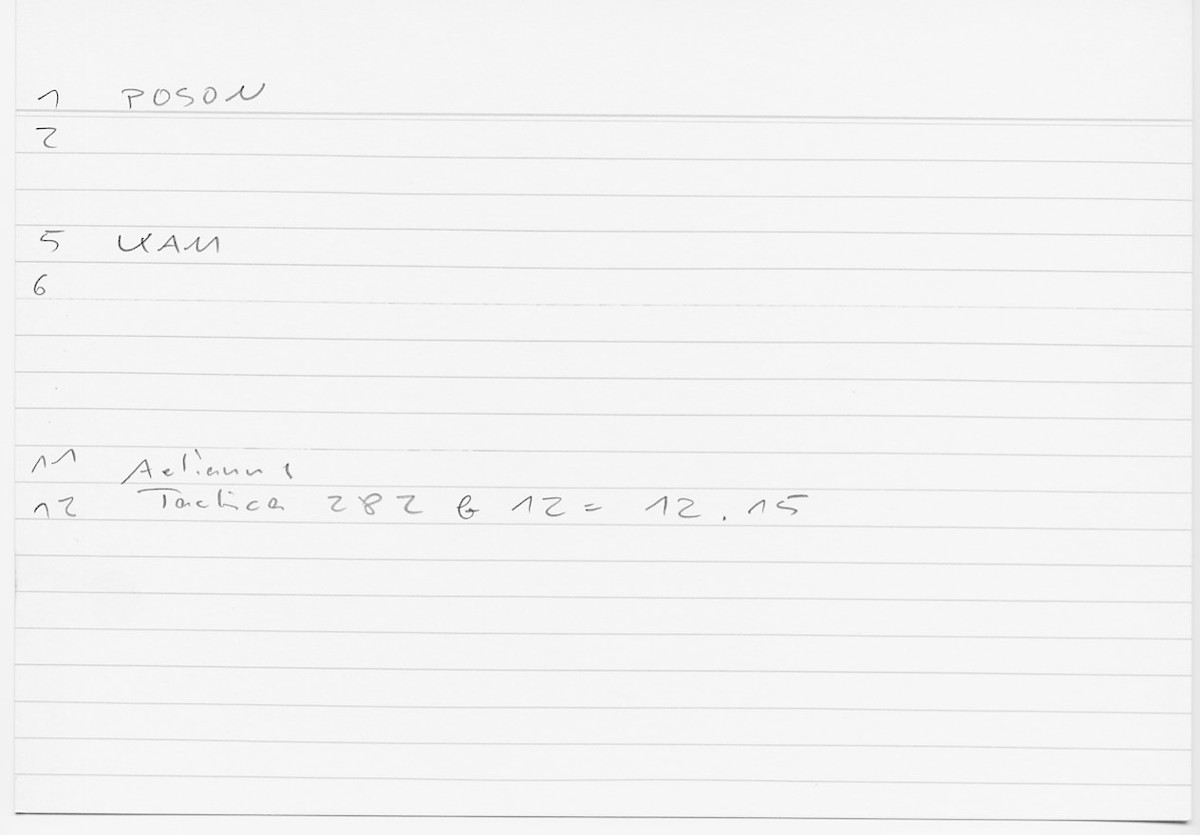 1 POSON
2
5 KAM
6
11 Aelianus
12 Tactica 282 b 12 = 12.15